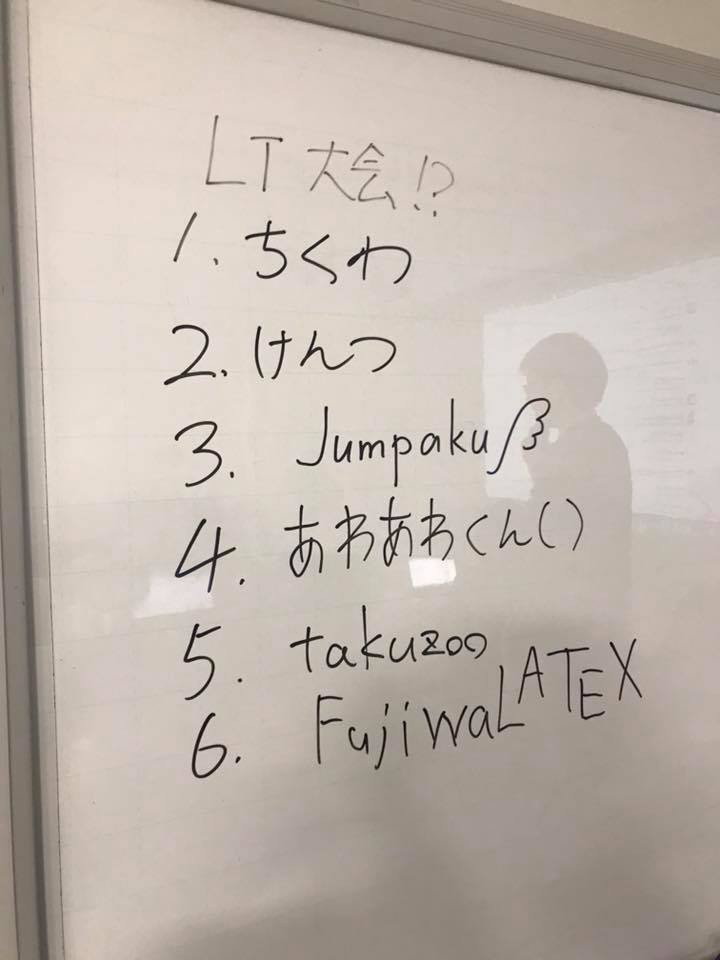 LT 大会!?
1. ちくわ
2. けんつ
3. Jumpakuβ
4. あわあわくん()
5. takuzoo
6. FujiwaLATEX